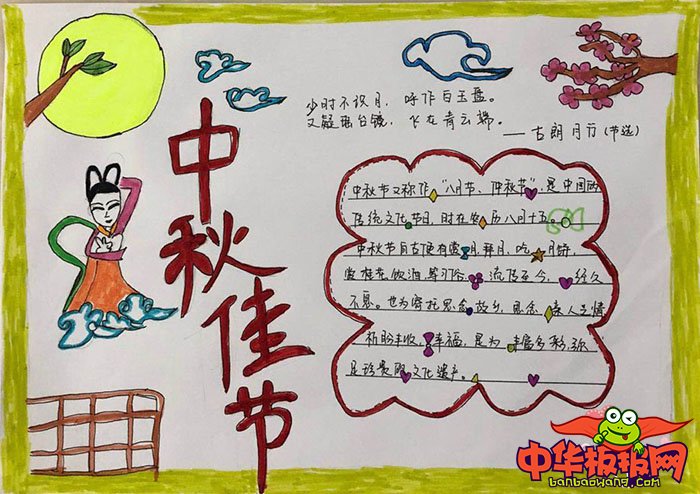 中秋佳节
少时不识月，呼作白玉盘。
又疑瑶台镜，飞在青云端。
——古朗月行（节选）
中秋节又称作“八月节、仲秋节”，是中国的
传统文化节日，时在农历八月十五。
中秋节自古便有赏月、拜月、吃月饼、
赏桂花、饮酒等习俗，流传至今，经久
不息。也为寄托思念故乡，思念亲人之情
祈盼丰收、幸福，是为丰富多彩，弥
足珍贵的文化遗产。
中华板报网
banbaowang.com